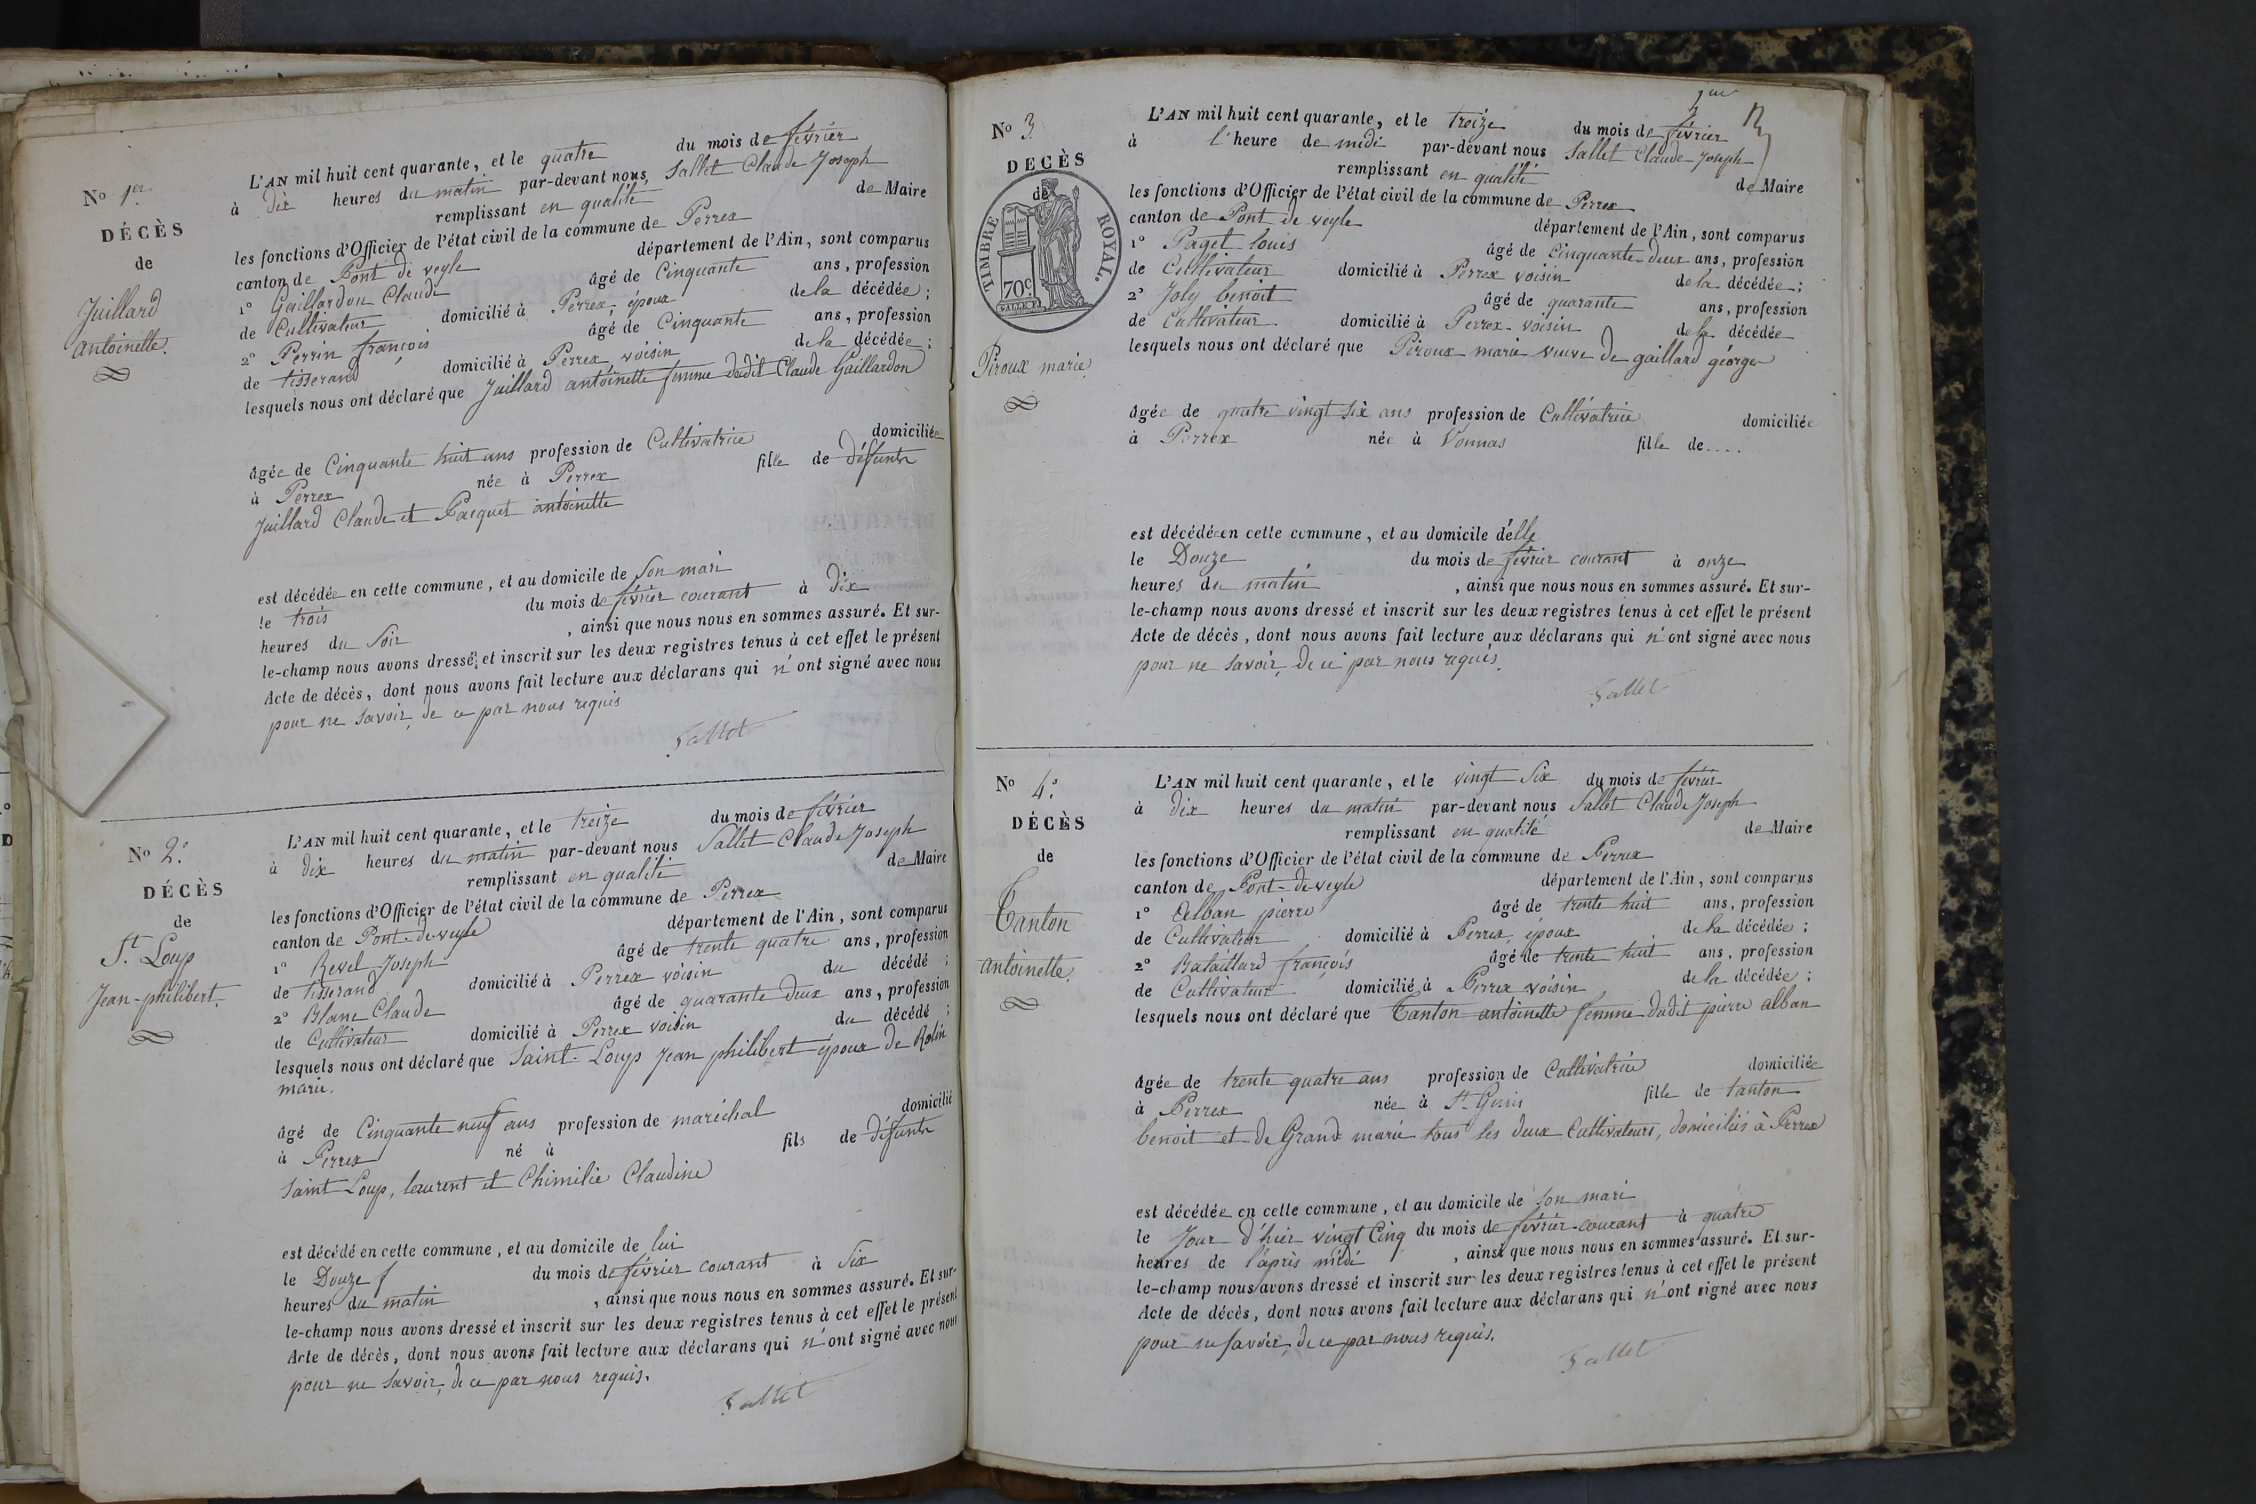 No 1er
DÉCÈS
de
Juillard
antoinette.
L'AN mil huit cent quarante, et le quatre du mois de février
à dix heures du matin par-devant nous Sallet Claude Joseph
remplissant en qualité de Maire
les fonctions d'Officier de l'état civil de la commune de Perrex
canton de Pont de veyle département de l'Ain, sont comparus
1° Gaillardon Claude âgé de Cinquante ans, profession
de Cultivateur domicilié à Perrex, époux de la décédée;
2° Perrin françois âgé de Cinquante ans, profession
de tisserand domicilié à Perrex, voisin de la décédée;
lesquels nous ont déclaré que Juillard antoinette femme dudit Claude Gaillardon
âgée de Cinquante huit ans profession de Cultivatrice domiciliée
à Perrex née à Perrex fille de défunts
Juillard Claude et Pacquet antoinette
est décédée en cette commune, et au domicile de Son mari
le trois du mois de février courant à Dix
heures du Soir, ainsi que nous nous en sommes assuré. Et sur-
le-champ nous avons dressé et inscrit sur les deux registres tenus à cet effet le présent
Acte de décès, dont nous avons fait lecture aux déclarans qui n'ont signé avec nous
pour ne Savoir, de ce par nous requis
Sallet
No 2.
DÉCÈS
de
St. Loup
Jean-philibert.
L'AN mil huit cent quarante, et le treize du mois de février
à dix heures du matin par-devant nous Sallet Claude Joseph
remplissant en qualité de Maire
les fonctions d'Officier de l'état civil de la commune de Perrex
canton de Pont-de-veyle département de l'Ain, sont comparus
1° Revel Joseph âgé de trente quatre ans, profession
de tisserand domicilié à Perrex voisin du décédé;
2° Blanc Claude âgé de quarante deux ans, profession
de Cultivateur domicilié à Perrex voisin du décédé;
lesquels nous ont déclaré que Saint-Loup Jean philibert époux de Rolin
marie.
âgé de Cinquante neuf ans profession de maréchal domicilié
à Perrex né à fils de défunts
Saint Loup, laurent et Chimilie Claudine
est décédé en cette commune, et au domicile de lui
le Douze f du mois de février courant à Six
heures du matin, ainsi que nous nous en sommes assuré. Et sur-
le-champ nous avons dressé et inscrit sur les deux registres tenus à cet effet le présent
Acte de décès, dont nous avons fait lecture aux déclarans qui n'ont signé avec nous
pour ne Savoir, de ce par nous requis.
Sallet
No 3
DECÈS
de
TIMBRE ROYAL.
70c
Piroux marie
L'AN mil huit cent quarante, et le treize du mois de février
à l'heure de midi par-devant nous Sallet Claude-Joseph
remplissant en qualité de Maire
les fonctions d'Officier de l'état civil de la commune de Perrex
canton de Pont de veyle département de l'Ain, sont comparus
1° Paget louis âgé de Cinquante-deux ans, profession
de Cultivateur domicilié à Perrex voisin de la décédée;
2° Joly benoit âgé de quarante ans, profession
de Cultivateur domicilié à Perrex-voisin de la décédée
lesquels nous ont déclaré que Piroux marie veuve de gaillard géorge
âgée de quatre vingt six ans profession de Cultivatrice domiciliée
à Perrex née à Vonnas fille de....
est décédée en cette commune, et au domicile d'elle
le Douze du mois de février courant à onze
heures du matin, ainsi que nous nous en sommes assuré. Et sur-
le-champ nous avons dressé et inscrit sur les deux registres tenus à cet effet le présent
Acte de décès, dont nous avons fait lecture aux déclarans qui n'ont signé avec nous
pour ne Savoir, de ce par nous requis.
Sallet
No 4.
DÉCÈS
de
Tanton
antoinette.
L'AN mil huit cent quarante, et le vingt Six du mois de février
à dix heures du matin par-devant nous Sallet Claude Joseph
remplissant en qualité de Maire
les fonctions d'Officier de l'état civil de la commune de Perrex
canton de Pont-de-veyle département de l'Ain, sont comparus
1° Alban pierre âgé de trente huit ans, profession
de Cultivateur domicilié à Perrex, époux de la décédée;
2° Bataillard françois âgé de trente huit ans, profession
de Cultivateur domicilié à Perrex voisin de la décédée;
lesquels nous ont déclaré que Tanton antoinette femme dudit pierre alban
âgée de trente quatre ans profession de Cultivatrice domiciliée
à Perrex née à St. Genis fille de tanton
benoit et de Grand marie tous les deux Cultivateurs, domiciliés à Perrex
est décédée en cette commune, et au domicile de son mari
le Jour d'hier vingt Cinq du mois de février-courant à quatre
heures de l'après midi, ainsi que nous nous en sommes assuré. Et sur-
le-champ nous avons dressé et inscrit sur les deux registres tenus à cet effet le présent
Acte de décès, dont nous avons fait lecture aux déclarans qui n'ont signé avec nous
pour ne savoir, de ce par nous requis.
Sallet